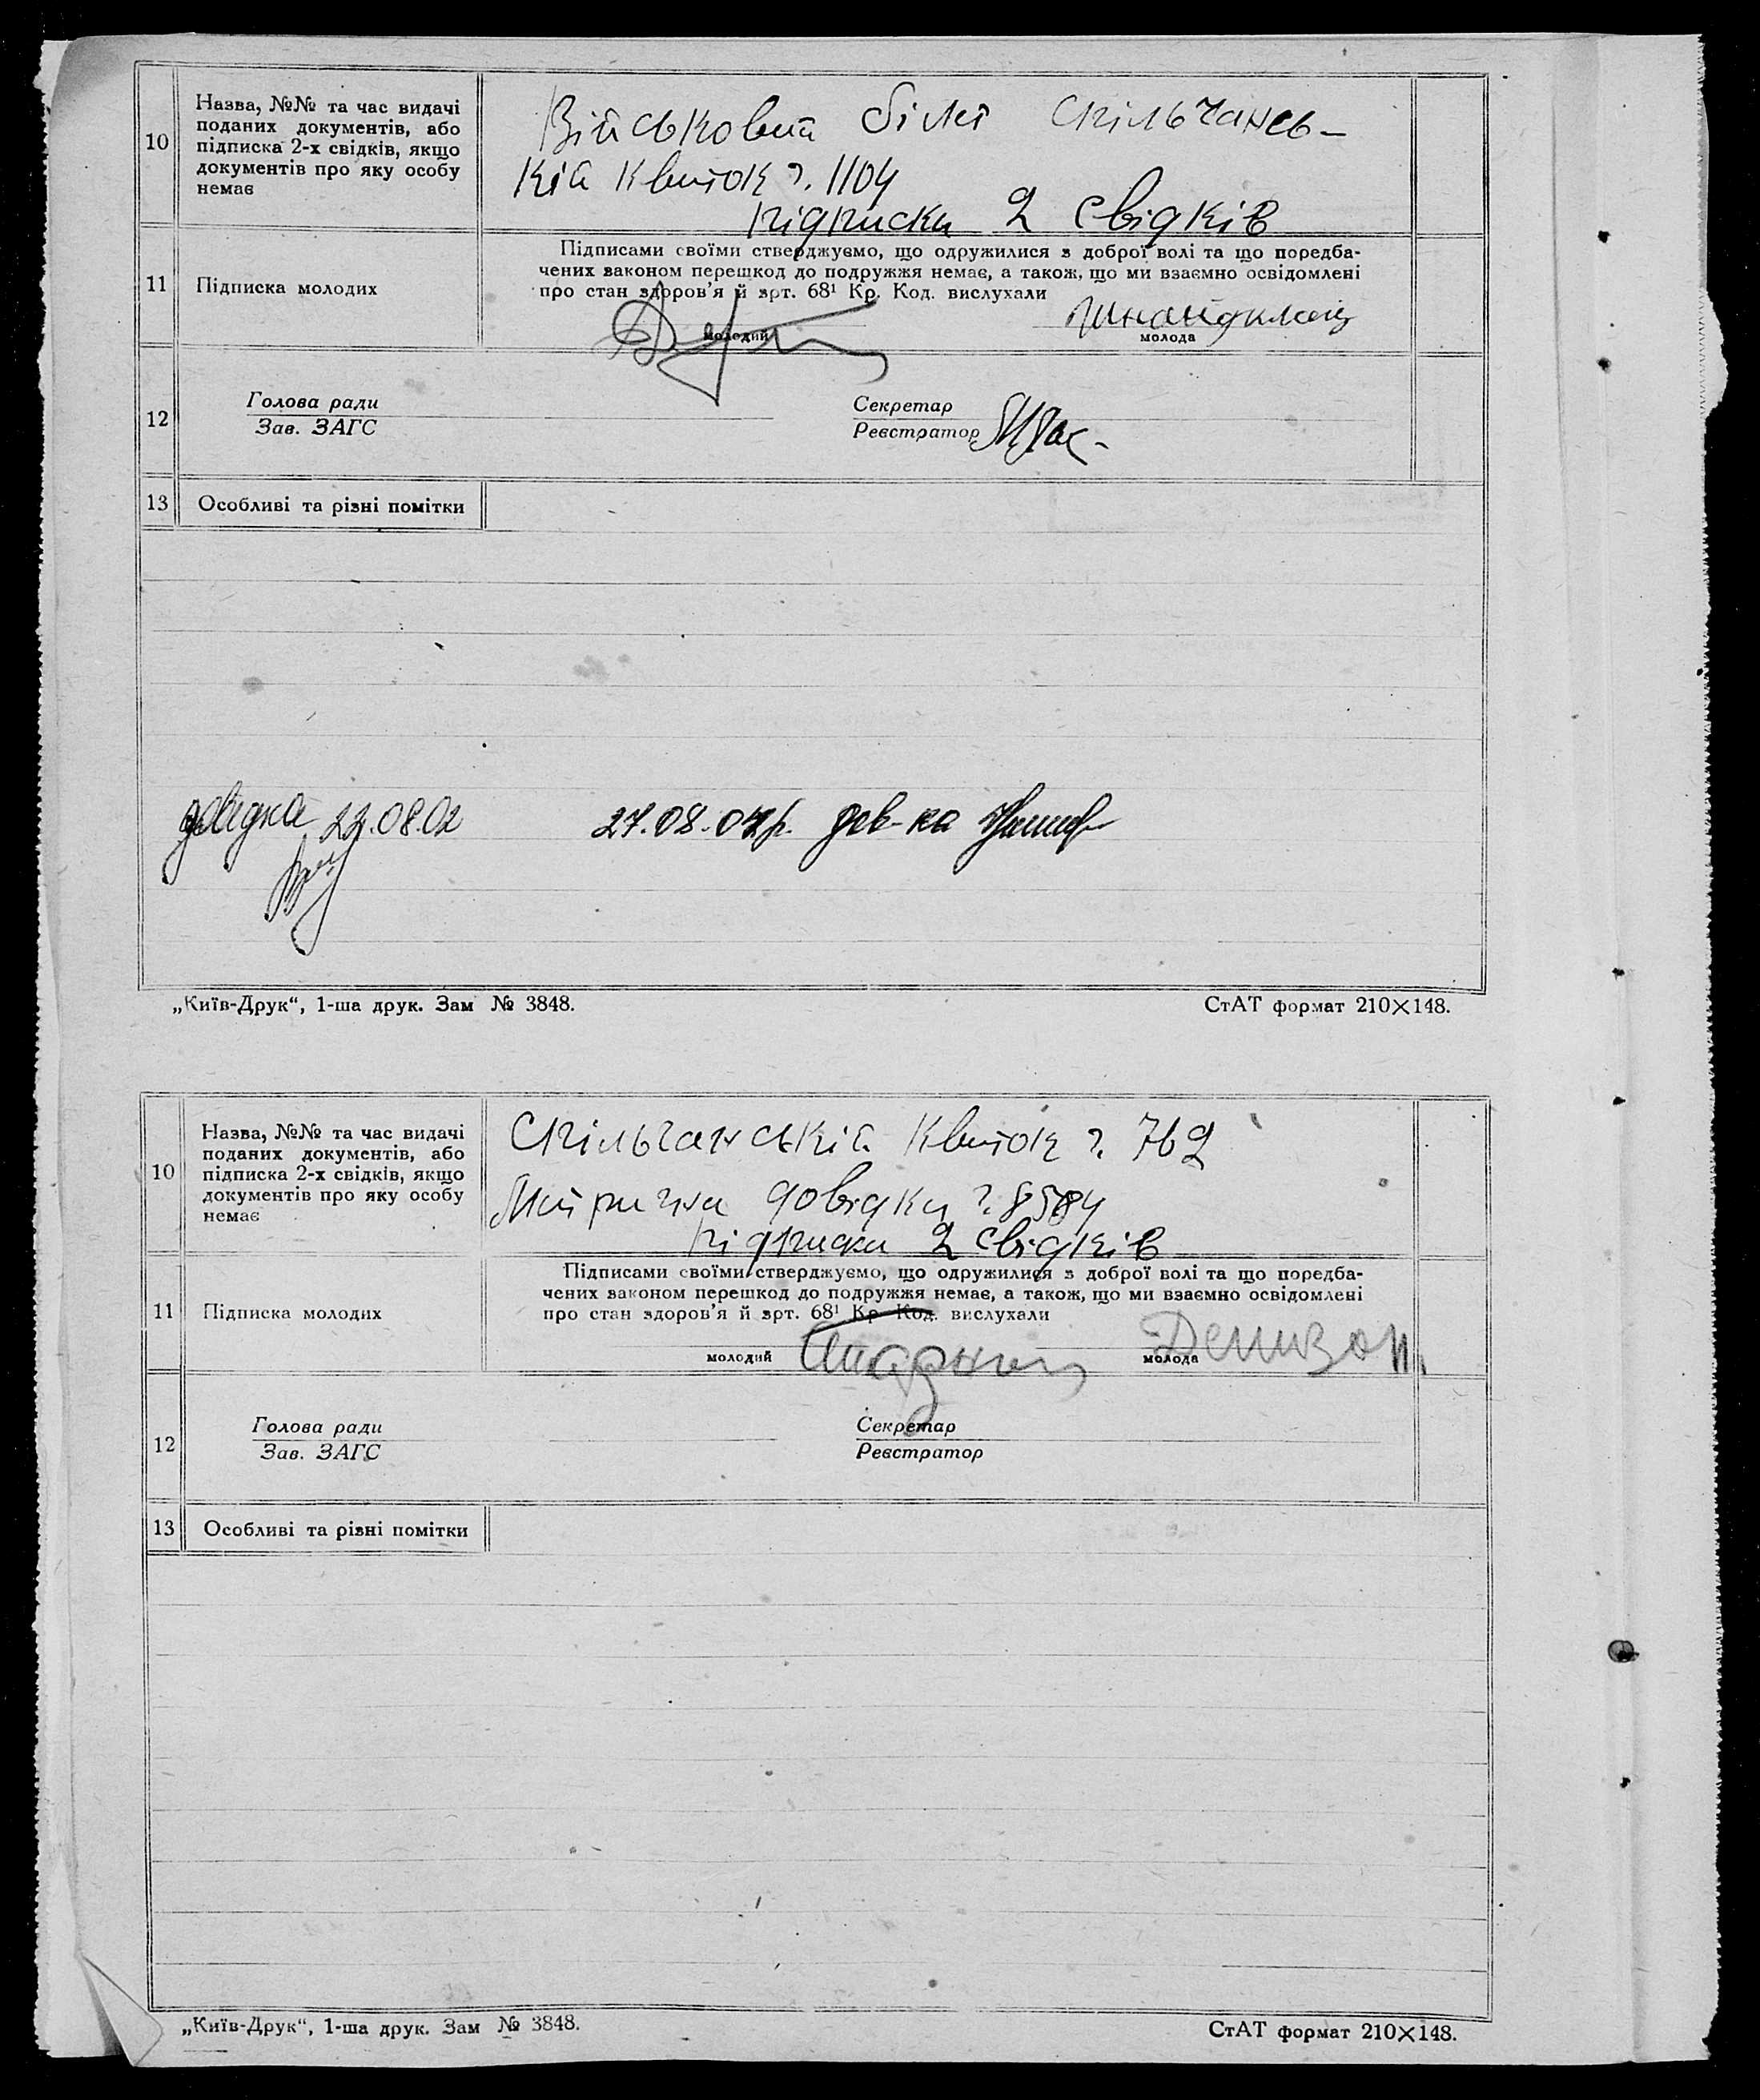 10
Назва, №№ та час видачі
поданих документів, або
підписка 2-х свідків, якщо
документів про яку особу
немає
Військовий білет спільчансь-
кій квиток ч. 1104
підписки 2 свідків
11
Підписка молодих
Підписами своїми стверджуємо, що одружилися з доброї волі та що поредба-
чених законом перешкод до подружжя немає, а також, що ми взаємно освідомлені
про стан здоров'я й арт. 68¹ Кр. Код. вислухали
молодий
молода
12
Голова ради
Зав. ЗАГС
Секретар
Реєстратор
13
Особливі та різні помітки
довідка 22.08.02
27.08.02р. дов-ка
„Київ-Друк“, 1-ша друк. Зам № 3848.
СтАТ формат 210×148.
10
Назва, №№ та час видачі
поданих документів, або
підписка 2-х свідків, якщо
документів про яку особу
немає
Спільчанській квиток ч. 762
Метрична довідка ч. 8584
підписки 2 свідків
11
Підписка молодих
Підписами своїми стверджуємо, що одружилися з доброї волі та що поредба-
чених законом перешкод до подружжя немає, а також, що ми взаємно освідомлені
про стан здоров'я й арт. 68¹ Кр Код. вислухали
молодий
молода
12
Голова ради
Зав. ЗАГС
Секретар
Реєстратор
13
Особливі та різні помітки
„Київ-Друк“, 1-ша друк. Зам № 3848.
СтАТ формат 210×148.